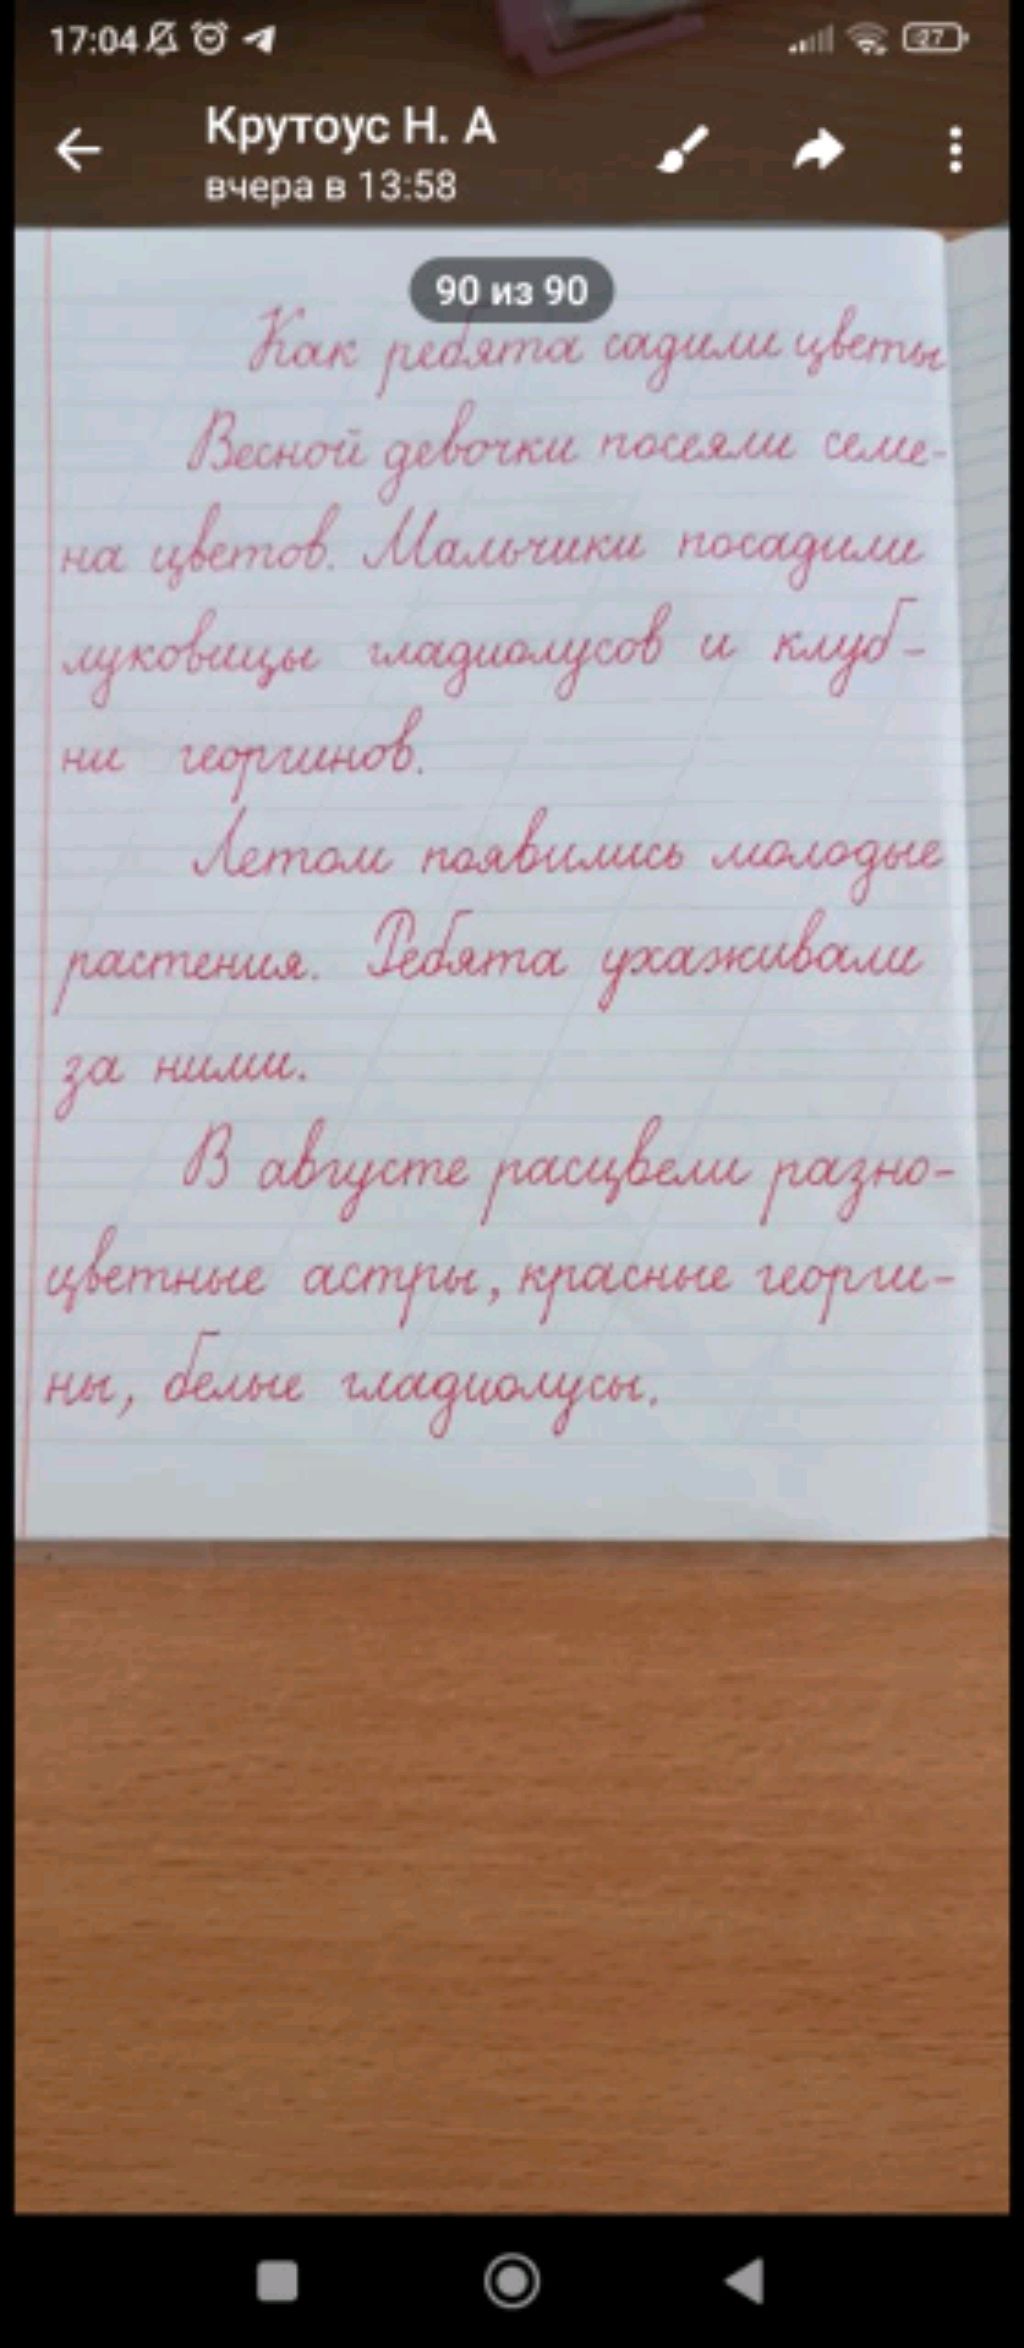 17:04
27
Крутоус Н. А
вчера в 13:58
90 из 90
Как ребята садили цветы
Весной девочки посеяли семе-
на цветов. Мальчики посадили
луковицы гладиолусов и клуб-
ни георгинов.
Летом появились молодые
растения. Ребята ухаживали
за ними.
В августе расцвели разно-
цветные астры, красные георги-
ны, белые гладиолусы.